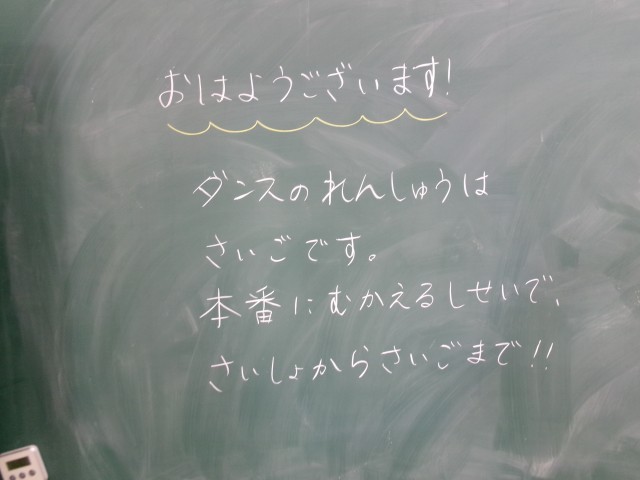 おはようございます!
ダンスのれんしゅうは
さいごです。
本番にむかえるしせいで、
さいしょからさいごまで!!